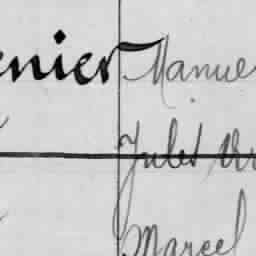 enier Manue
Jules
Marcel